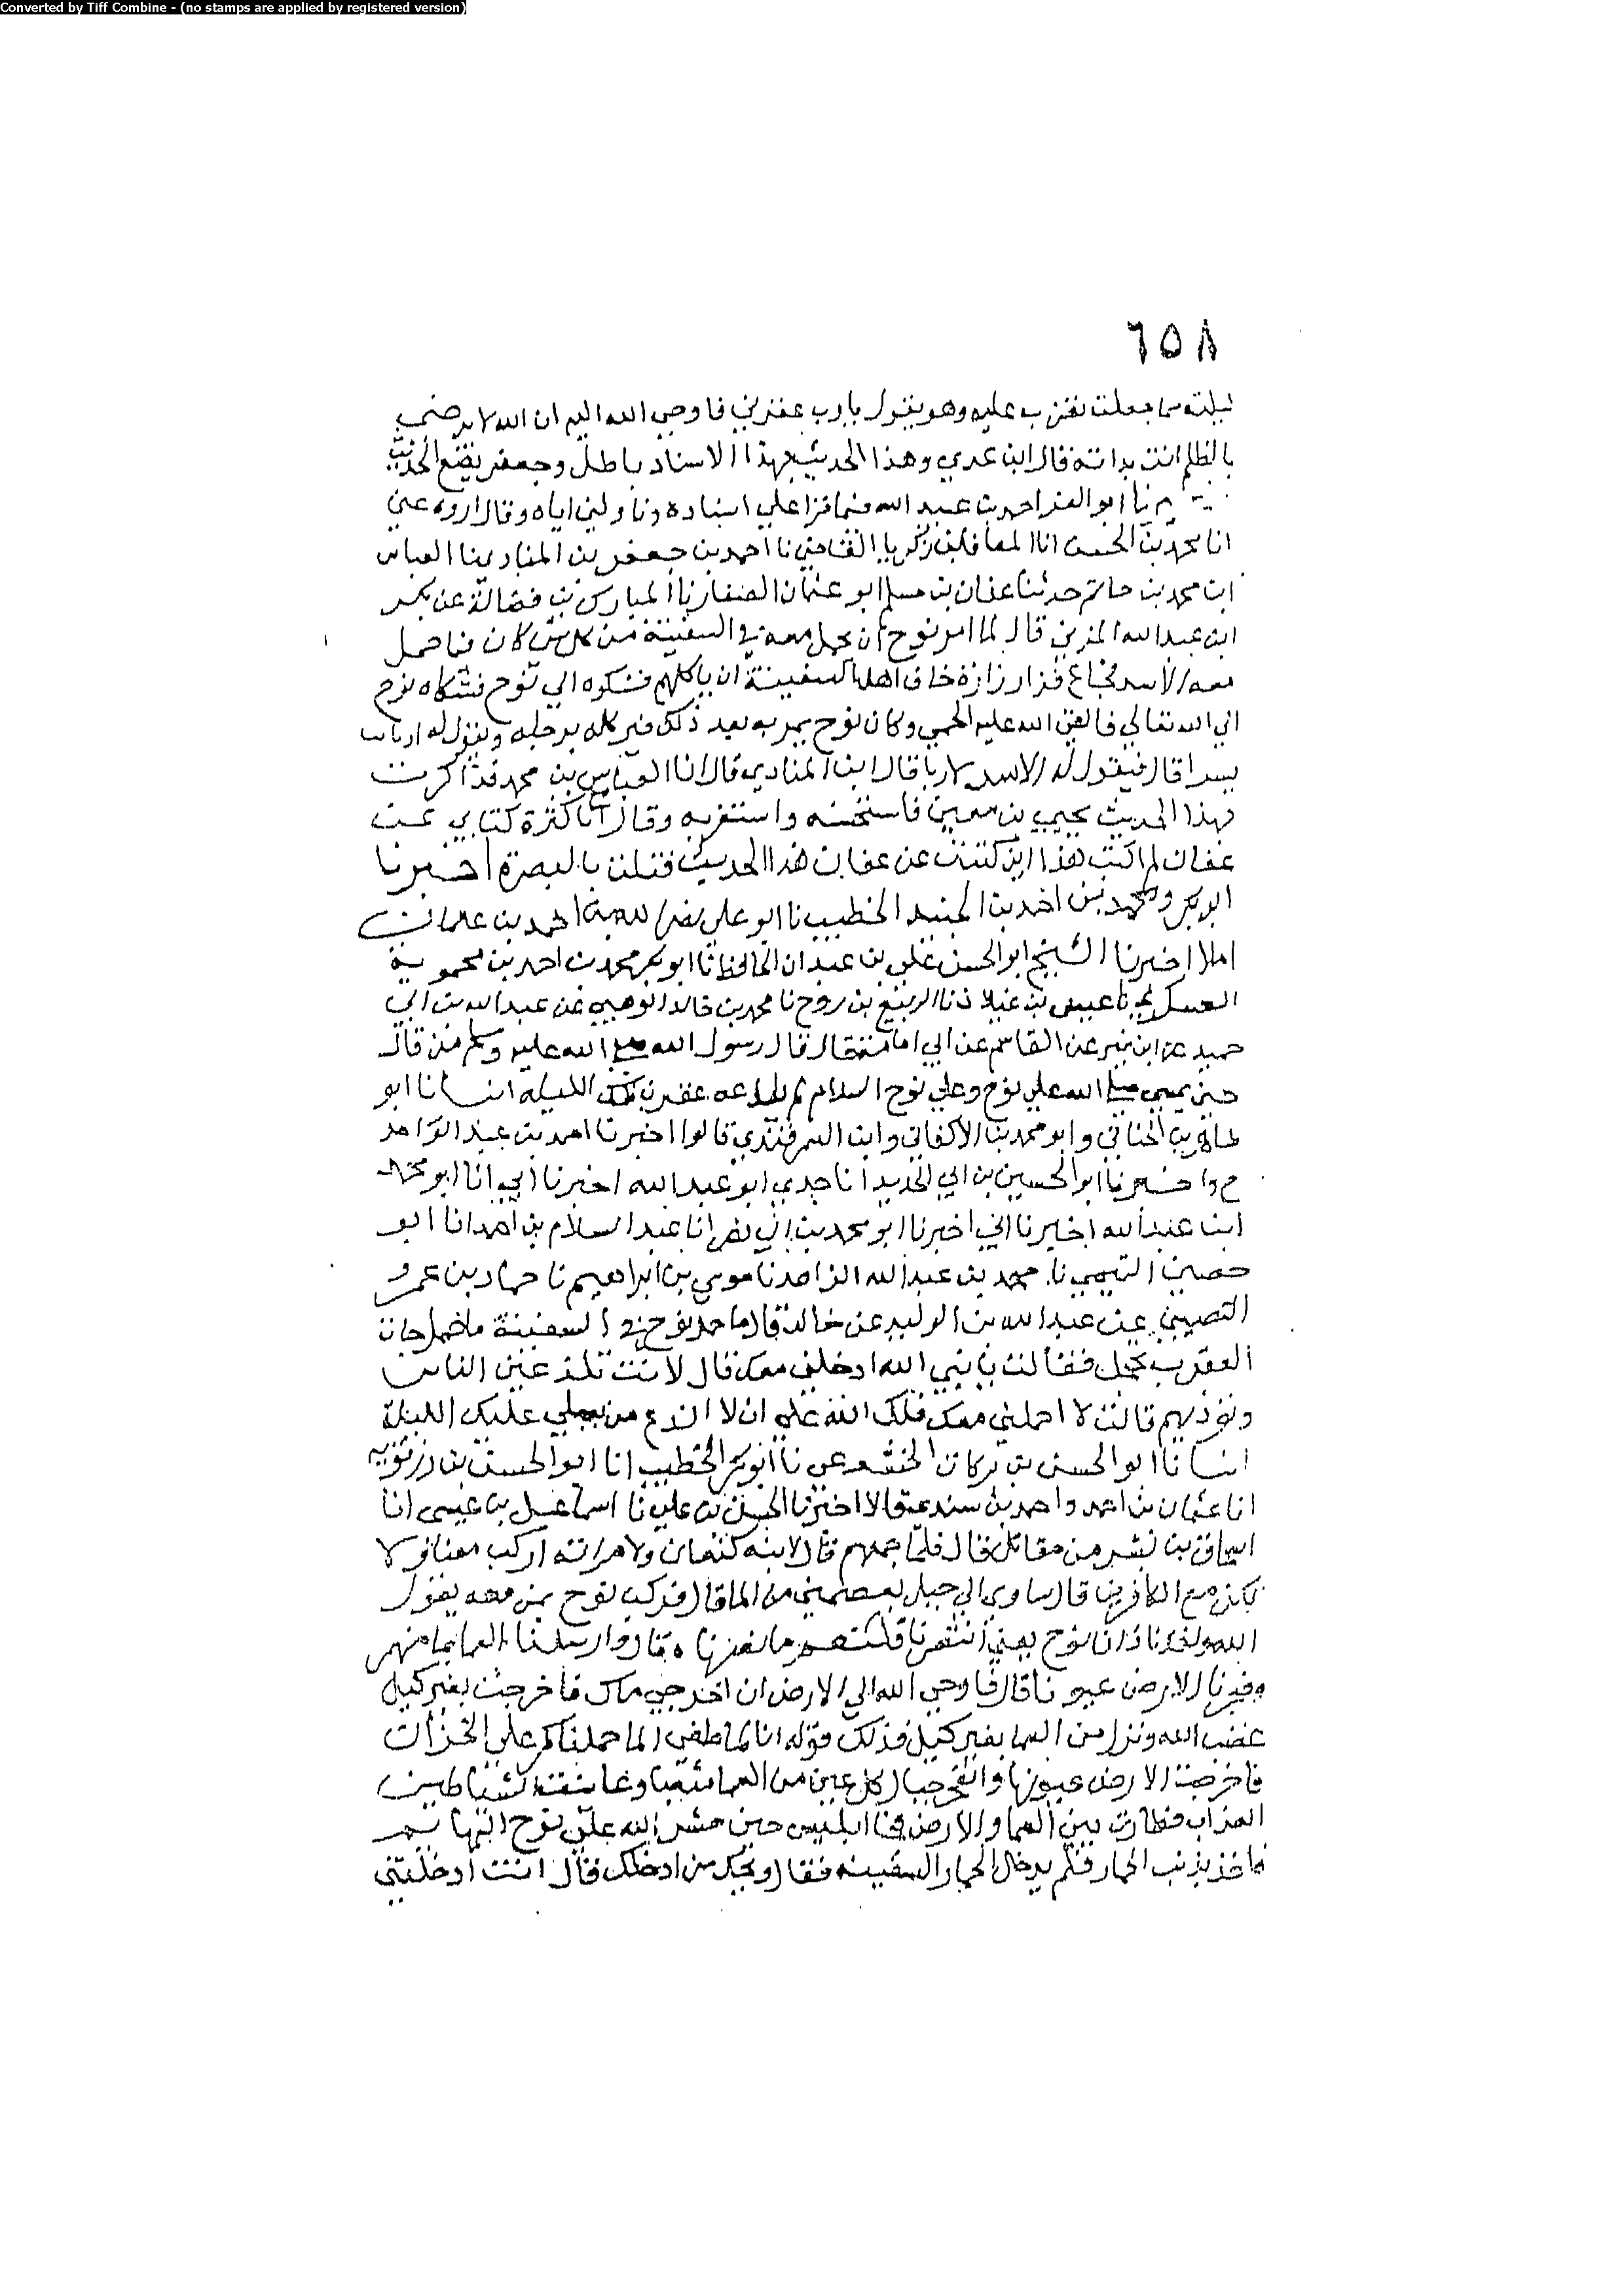 Converted by Tiff Combine - (no stamps are applied by registered version)
٦٥٨
ليلته مما جعلت تضرب عليه وهو يقول يا رب عقرتني فاوحي الله اليه ان الله لا يرضي
بالظلم انت بداته قال ابن عدي وهذا الحديث بهذا الاسناد باطل وجعفر يضع الحديث
نا ابو العز احمد بن عبد الله فيما قرا علي اسناده وناولني اياه وقال اروه عني
انا محمد بن الحسين انا المعافي بن زكريا القاضي نا احمد بن جعفر بن المنادي نا العباس
ابن محمد بن حاتم حدثنا عفان بن مسلم ابو عثمان الصفار نا المبارك بن فضالة عن بكر
ابن عبد الله المزني قال لما امر نوح ان يحمل معه في السفينة من كل شي كان فيما حمل
معه الاسد فزار زارة خاف اهل السفينة ان ياكلهم فشكوه الي نوح فشكاه نوح
الي الله تعالي فالقي الله عليه الحمي وكان نوح يمر به بعد ذلك فيركله برجله ويقول له
قال فيقول له الاسد لا ربا قال ابن المنادي قال انا العباس بن محمد فذاكرت
بهذا الحديث يحيي بن معين فاستحسنه واستغربه وقال انا كثرة كتابي عن
عفان لم اكتب هذا اين كتبت عن عفان هذا الحديث قلت بالبصرة اخبرنا
ابو بكر محمد بن احمد بن الجنيد الخطيب نا ابو علي نصر الله بن احمد بن عثمان
املا اخبرنا الشيخ ابو الحسن علي بن عبدان الحافظ نا ابو بكر محمد بن احمد بن محموية
العسكري نا عيسي بن غيلان نا الربيع بن روح نا محمد بن خالد الوهبي عن عبد الله بن ابي
حميد عن ابن نمير عن القاسم عن ابي امامة قال قال رسول الله صلي الله عليه وسلم من قال
حين يمسي صلي الله علي نوح وعلي نوح السلام لم تلدغه عقرب تلك الليلة انبانا ابو
طاهر بن الحنائي وابو محمد بن الاكفاني وابن السمرقندي قالوا اخبرنا احمد بن عبد الواحد
ح واخبرنا ابو الحسين بن ابي الحديد انا جدي ابو عبد الله اخبرنا ابي انا ابو محمد
ابن عبد الله اخبرنا ابي اخبرنا ابو محمد بن ابي نصر انا عبد السلام بن احمد انا ابو
حصين التميمي نا محمد بن عبد الله الزاهد نا موسي بن ابراهيم نا حماد بن عمرو
النصيبي عن عبد الله بن الوليد عن خالد قال لما حمل نوح في السفينة ما حمل جات
العقرب تحجل فقالت يا نبي الله ادخلني معك قال لا انت تلدغين الناس
وتؤذيهم قالت لا احملني معك فلك الله علي ان لا الدغ من يصلي عليك الليلة
انبانا ابو الحسن بن بركات الخشوعي نا ابو بكر الخطيب انا ابو الحسن بن رزقويه
انا عثمان بن احمد واحمد بن سندي قالا اخبرنا الحسن بن علي نا اسماعيل بن عيسي انا
اسحاق بن بشر عن مقاتل قال فلما حملهم قال لابنه كنعان ولامراته اركب معنا ولا
تكن مع الكافرين قال ساوي الي جبل يعصمني من الما قال فركب نوح بمن معه يقول
الله ولقد نادانا نوح يعني انتصرنا قال وارسلنا السما بما منهمر
وفجرنا الارض عيونا قال فاوحي الله الي الارض ان اخرجي ماك فاخرجت بغير كيل
غضب الله ونزل من السما بغير كيل فذلك قوله انا لما طغي الما حملناكم علي الخزان
فاخرجت الارض عيونها وانفجر جبال كل عين من السما وعانقته شياطين
العذاب فطارت بين السما والارض فجا ابليس حين حشر الله علي نوح البهايم
فاخذ بذنب الحمار فلم يدخل الحمار السفينه فقال ويحك من ادخلك قال انت ادخلتني